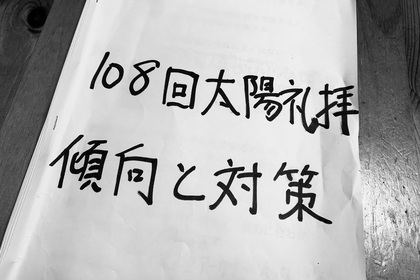 108回太陽礼拝
傾向と対策